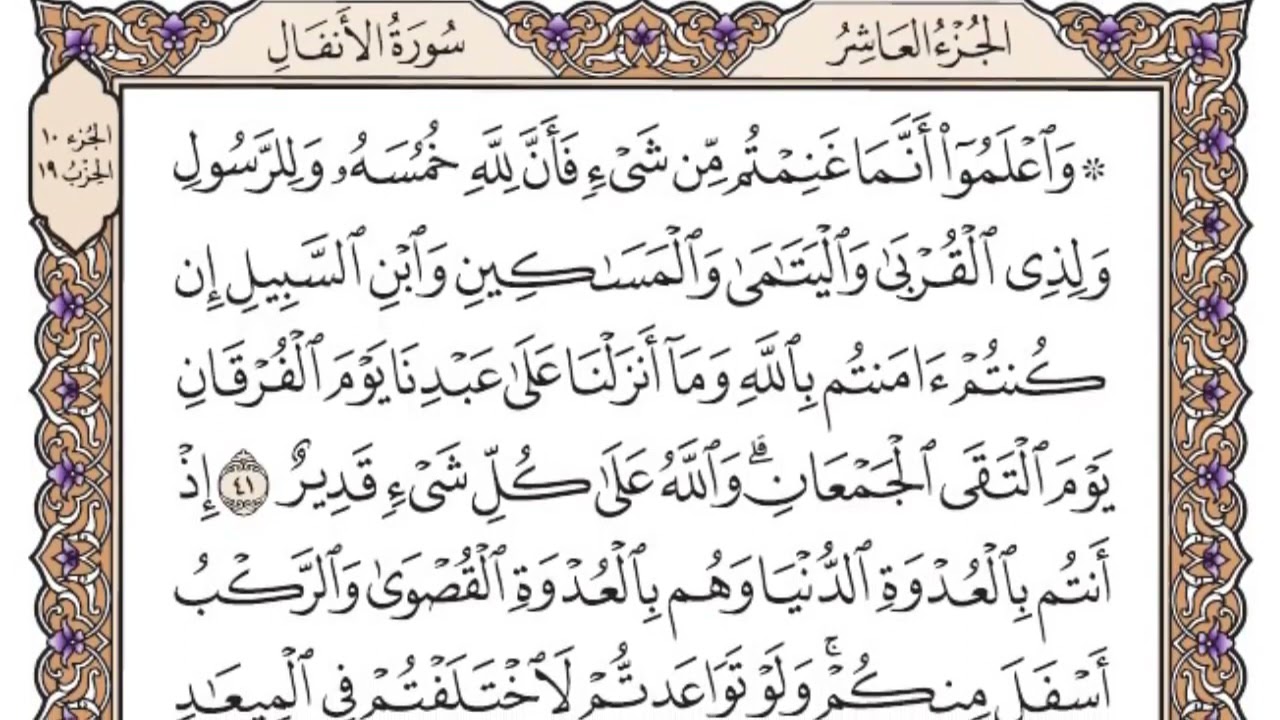 الجُزْءُ العَاشِرُ
سُورَةُ الأَنفَالِ
الجُزء ١٠
الحِزْبُ ١٩
۞ وَٱعۡلَمُوٓاْ أَنَّمَا غَنِمۡتُم مِّن شَيۡءٖ فَأَنَّ لِلَّهِ خُمُسَهُۥ وَلِلرَّسُولِ
وَلِذِي ٱلۡقُرۡبَىٰ وَٱلۡيَتَٰمَىٰ وَٱلۡمَسَٰكِينِ وَٱبۡنِ ٱلسَّبِيلِ إِن
كُنتُمۡ ءَامَنتُم بِٱللَّهِ وَمَآ أَنزَلۡنَا عَلَىٰ عَبۡدِنَا يَوۡمَ ٱلۡفُرۡقَانِ
يَوۡمَ ٱلۡتَقَى ٱلۡجَمۡعَانِۗ وَٱللَّهُ عَلَىٰ كُلِّ شَيۡءٖ قَدِيرٌ ٤١ إِذۡ
أَنتُم بِٱلۡعُدۡوَةِ ٱلدُّنۡيَا وَهُم بِٱلۡعُدۡوَةِ ٱلۡقُصۡوَىٰ وَٱلرَّكۡبُ
أَسۡفَلَ مِنكُمۡۚ وَلَوۡ تَوَاعَدتُّمۡ لَٱخۡتَلَفۡتُمۡ فِي ٱلۡمِيعَٰدِ